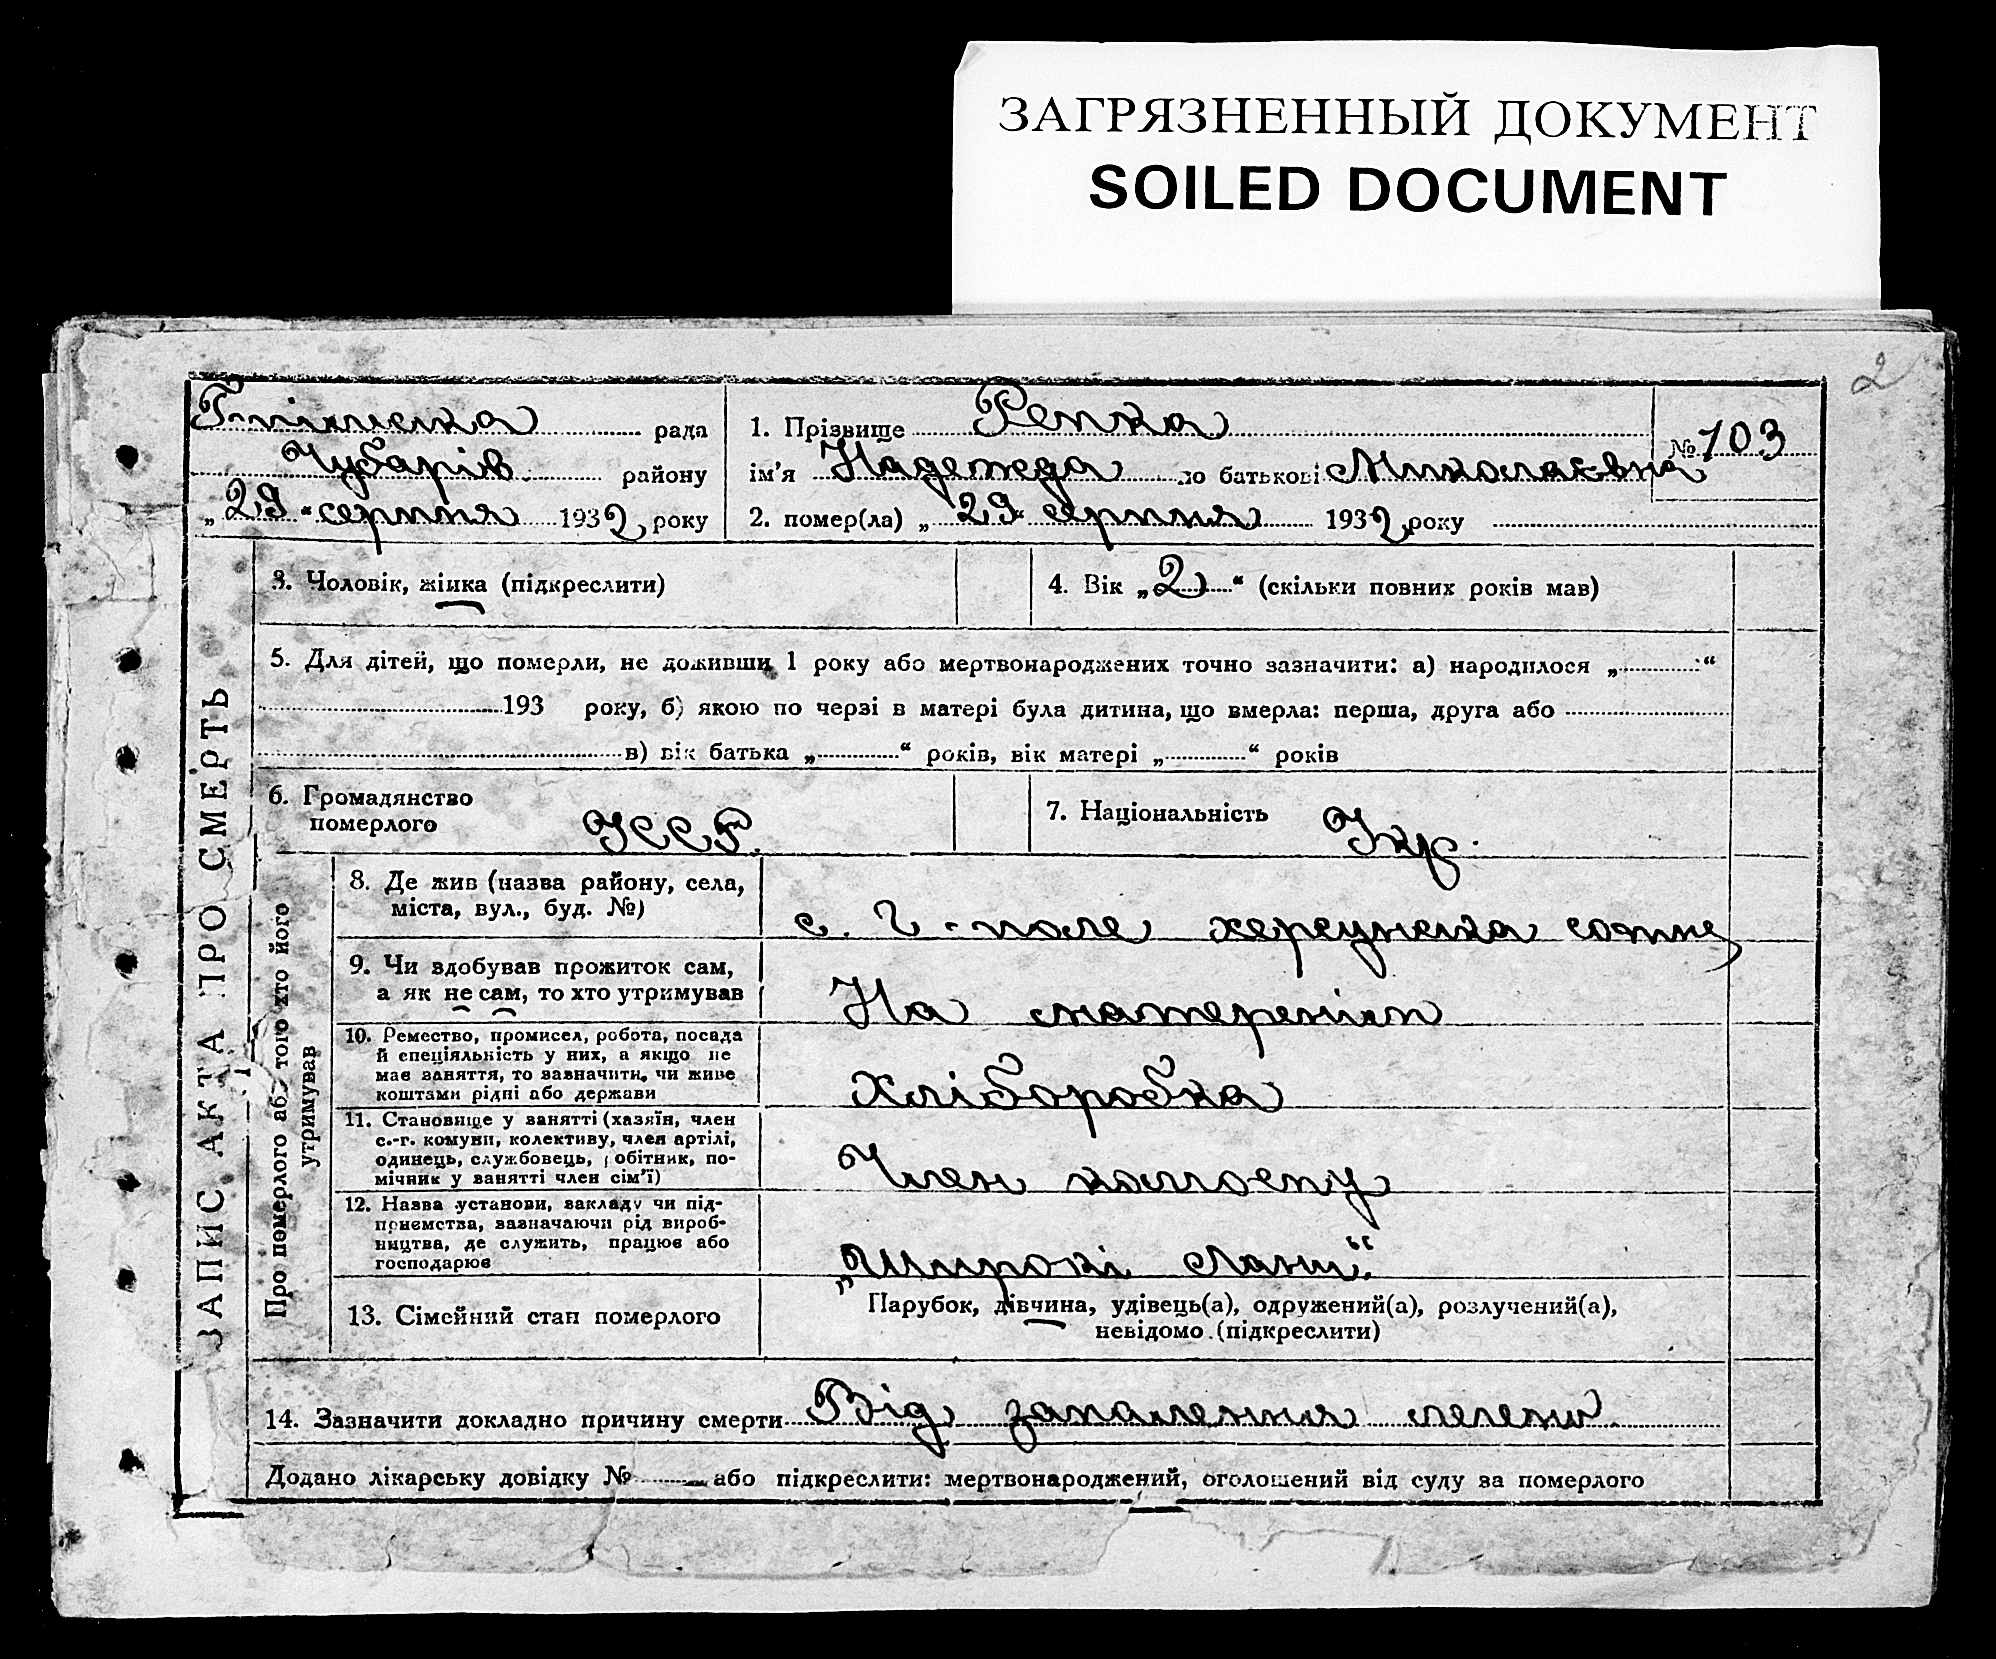 ЗАГРЯЗНЕННЫЙ ДОКУМЕНТ
SOILED DOCUMENT
2
рада
Чубарів району
„29" серпня 1932 року
1. Прізвище Репка
ім'я Надежда по батькові Миколаєвна
№ 103
2. помер(ла) „29" серпня 1932 року
ЗАПИС АКТА ПРО СМЕРТЬ
3. Чоловік, жінка (підкреслити)
4. Вік „2" (скільки повних років мав)
5. Для дітей, що померли, не доживши 1 року або мертвонароджених точно зазначити: а) народилося „ "
193 року, б) якою по черзі в матері була дитина, що вмерла: перша, друга або
в) вік батька „ " років, вік матері „ " років
6. Громадянство
померлого УССР.
7. Національність Укр.
Про померлого або того хто його
утримував
8. Де жив (назва району, села,
міста, вул., буд. №)
с. Г-поле херсунська сотня
9. Чи здобував прожиток сам,
а як не сам, то хто утримував
На
10. Ремество, промисел, робота, посада
й спеціяльність у них, а якщо не
має заняття, то зазначити, чи живе
коштами рідні або держави
Хліборобка
11. Становище у занятті (хазяїн, член
с.-г. комуни, колективу, член артілі,
одинець, службовець, робітник, по-
мічник у занятті член сім'ї)
Член колгоспу
12. Назва установи, закладу чи під-
приємства, зазначаючи рід вироб-
ництва, де служить, працює або
господарює
„Широкі Лани".
13. Сімейний стан померлого
Парубок, дівчина, удівець(а), одружений(а), розлучений(а),
невідомо (підкреслити)
14. Зазначити докладно причину смерти Від запалення легень.
Додано лікарську довідку № або підкреслити: мертвонароджений, оголошений від суду за померлого